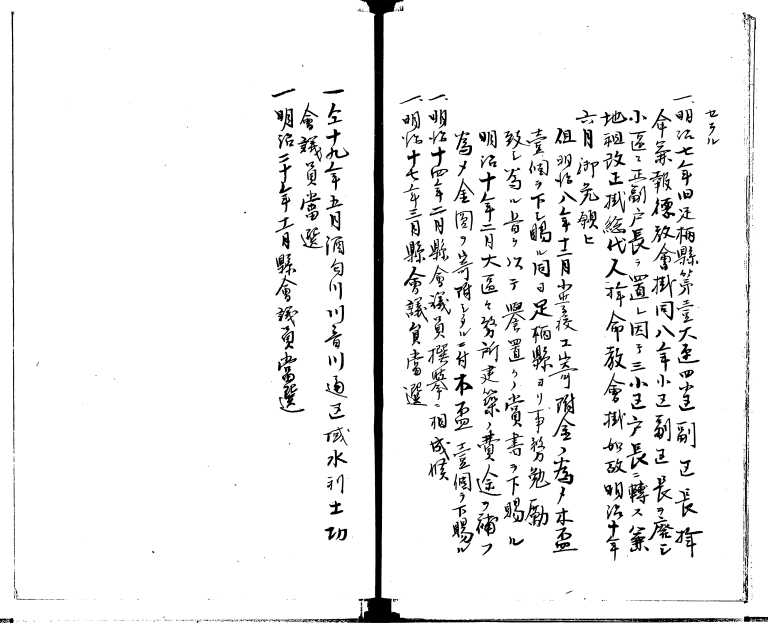 セラル
一明治七年旧足柄縣第壹大區四小區副區長拜
命兼報徳教會掛同八年小区副区長ヲ廃シ
小區ニ正副戸長ヲ置レ因テ三小区戸長ニ轉ス兼
地租改正掛総代人拜命教會掛如故明治十年
六月御免願ヒ
但明治八年十二月小学校エ寄附金ノ為メ木盃
壹個ヲ下シ賜ル同日足柄縣ヨリ事務勉励
致シ為ル旨ヲ以テ誉置クノ賞書ヲ下賜ル
明治十年二月大區々務所建築ノ費途ヲ補フ
為メ金圓ヲ寄附シタルニ付木盃壹個ヲ下賜ル
一明治十四年二月縣會議員撰擧ニ相成候
一明治十七年三月縣會議員當選
一仝十九年五月酒匂川川音川通区域水利土功
會議員當選
一明治二十年十一月縣會議員當選